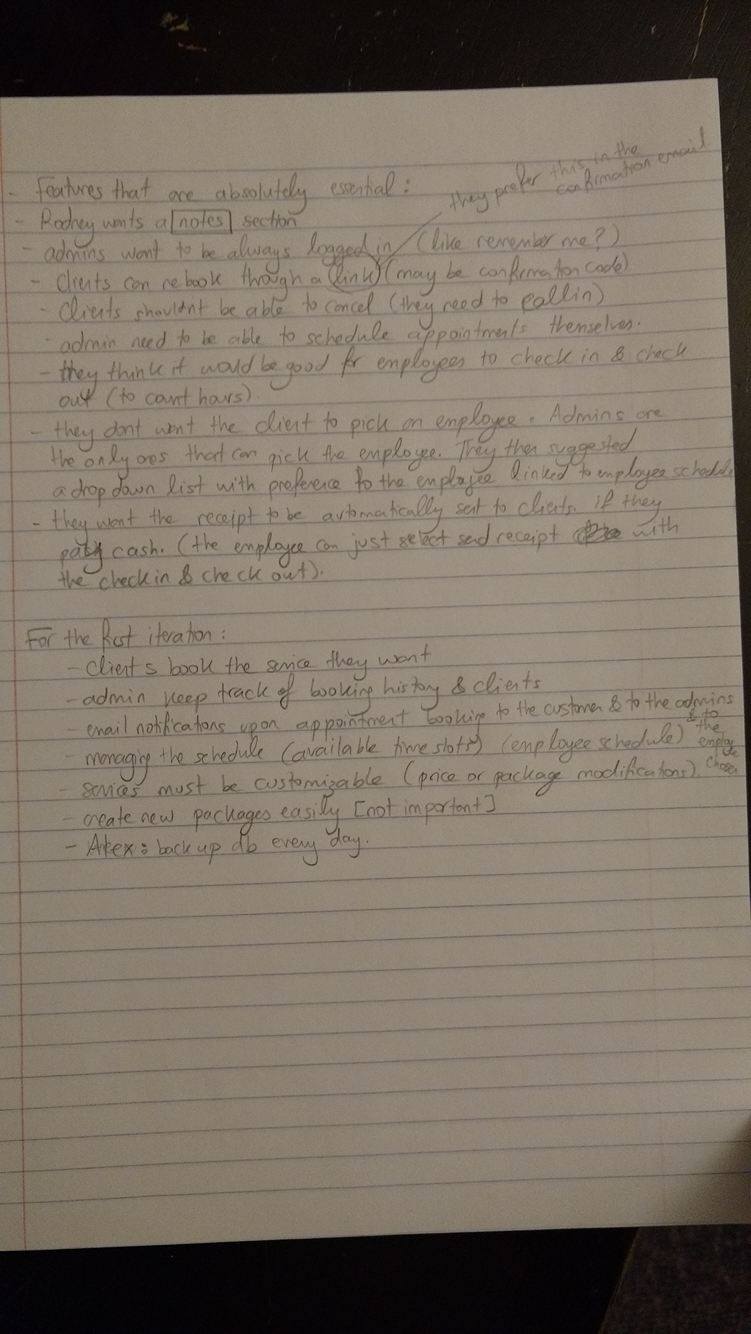 they prefer this in the
confirmation email
- Features that are absolutely essential:
- Rodney wants a notes section
- admins want to be always logged in (like remember me?)
- Clients can rebook through a link (may be confirmation code)
- Clients shouldnt be able to cancel (they need to call in)
- admin need to be able to schedule appointments themselves.
- they think it would be good for employees to check in & check
out (to count hours)
- they dont want the client to pick an employee. Admins are
the only ones that can pick the employee. They then suggested
a drop down list with preference to the employee linked to employee schedule
- they want the receipt to be automatically sent to clients if they
pay cash. (the employee can just select send receipt with
the check in & check out).
For the first iteration:
- Clients book the service they want
- admin keep track of booking history & clients
- email notifications upon appointment booking to the customer & to the admins
& to the employee chosen
- managing the schedule (available time slots) (employee schedule)
- services must be customizable (price or package modifications)
- create new packages easily [not important]
- Alex: back up db every day.